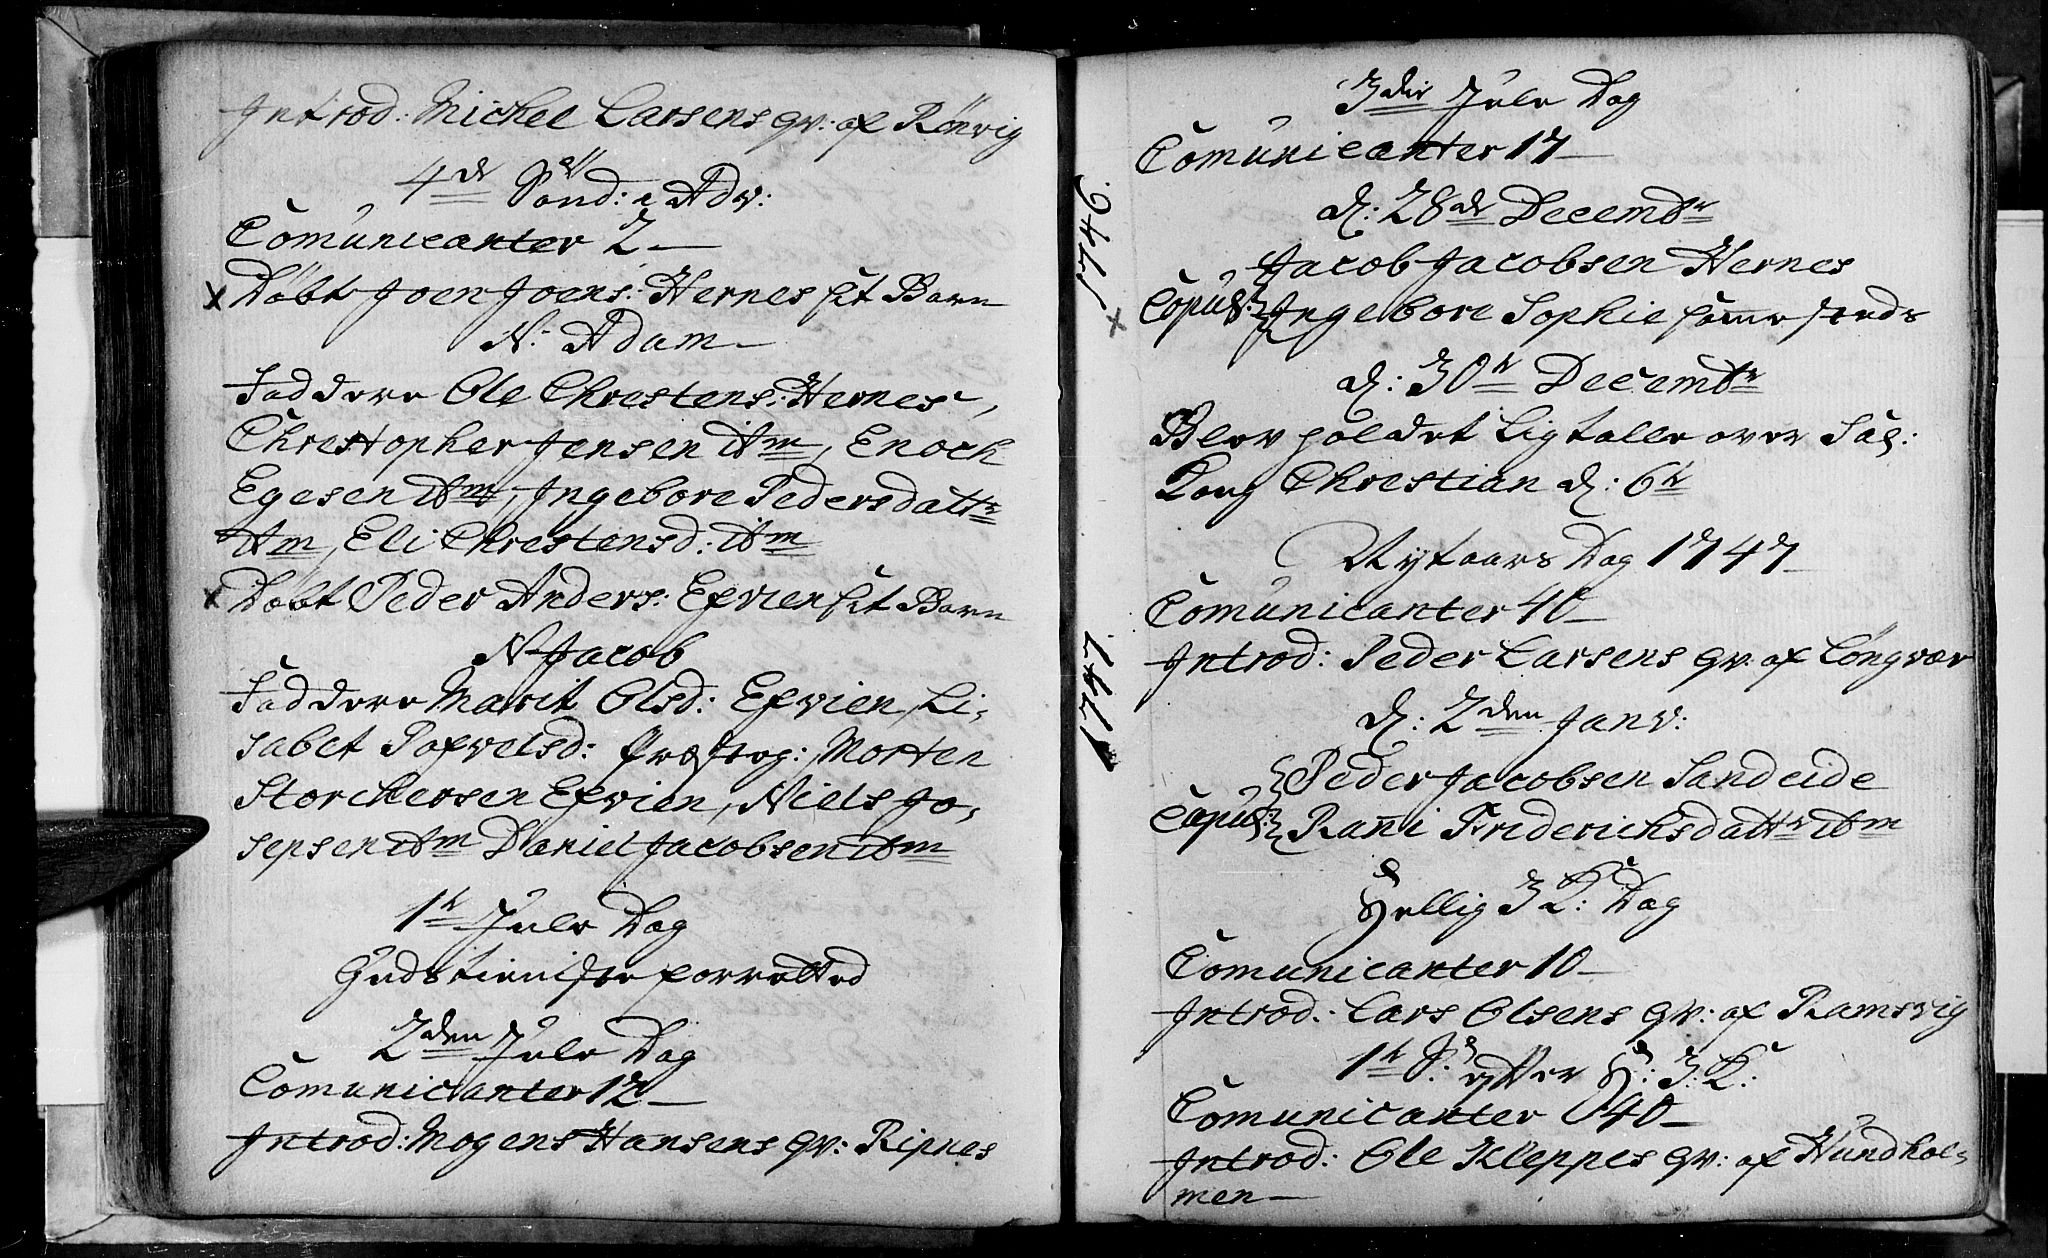 Introd: Michel Larsens qv: af Rönvig
4de Sönd: i Adv:
Comunicanter 2
x Döbt Joen Joens: Hernes sit Barn
N: Adam
Faddere Ole Chrestens: Hernes,
Christopher Jensen ibm, Enoch
Egesen ibm, Ingebore Pedersdattr
ibm, Eli Chrestensd: ibm
x Döbt Peder Anders: Efvien sit Barn
N Jacob
Faddere Marit Olsd: Efvien, Li-
sabet Pofvelsd: Præsteg: Morten
Storchersen Efvien, Niels Jo-
sepsen ibm Daniel Jacobsen ibm
1te Jule Dag
Gudstienisten forretted
2den Jule Dag
Comunicanter 12
Introd: Mogens Hansens qv: Ripnes
3die Jule Dag
Comunicanter 17
1746.
d: 28de Decembr
Jacob Jacobsen Hernes
x Copul: Ingebore Sophie samme steds
d: 30te Decembr
Blev holdet Ligtalle over Sal:
Kong Chrestian d: 6te
Nytaars Dag 1747
1747.
Comunicanter 40
Introd: Peder Larsens qv: af Löngvær
d: 2den Janv:
Peder Jacobsen Sandeide
Copul: Rani Friderichsdattr ibm
Hellig 3 K: Dag
Comunicanter 10
Introd: Lars Olsens qv: af Ramsvig
1te S: efter H: 3: K:
Comunicanter 40
Introd: Ole Kleppes qv: af Hundhol-
men